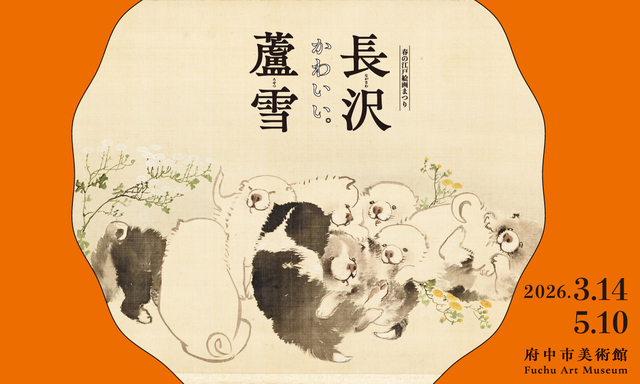 春の江戸絵画まつり
長沢
ながさわ
蘆雪
ろせつ
かわいい。
2026.3.14
5.10
府中市美術館
Fuchu Art Museum